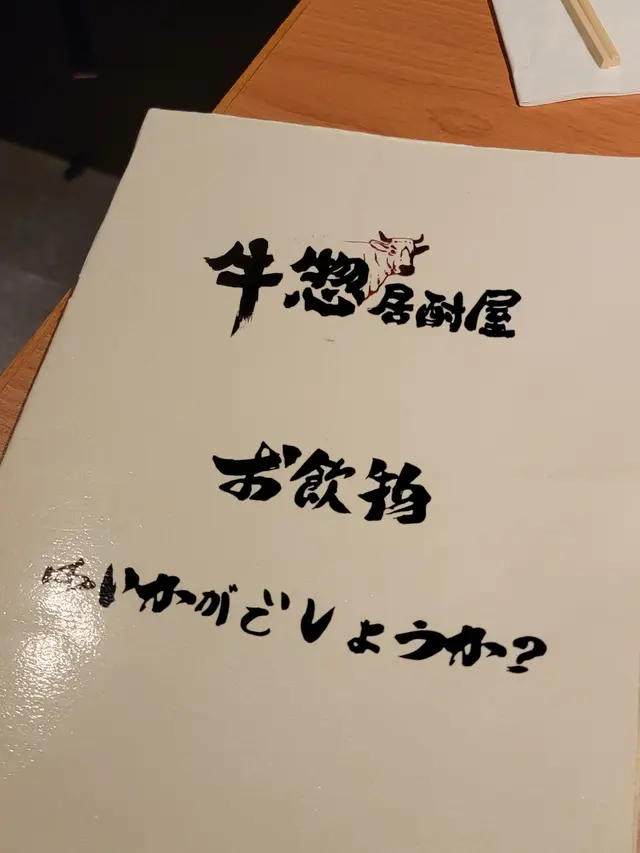 牛惣居酎屋
お飲物
はいかがごしょうか?